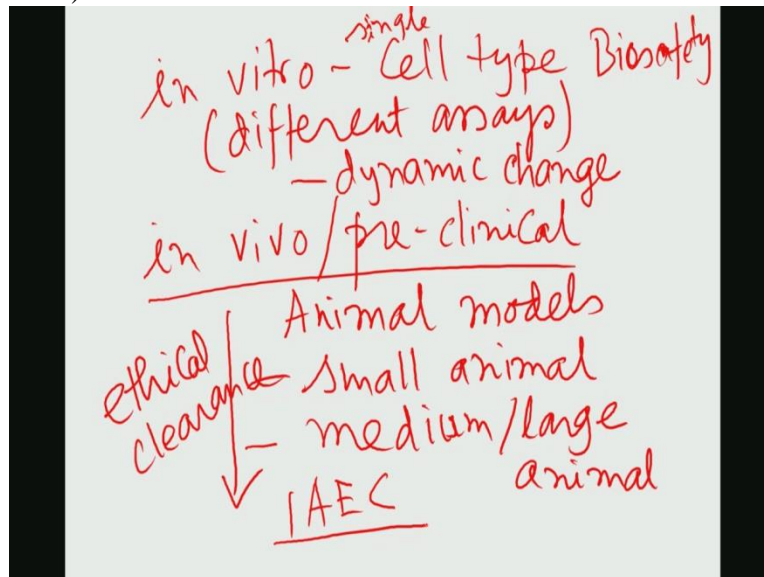 single
in vitro - Cell type Biosafety
(different assays)
- dynamic change
in vivo/pre-clinical
Animal models
ethical clearance
- small animal
- medium/large animal
IAEC